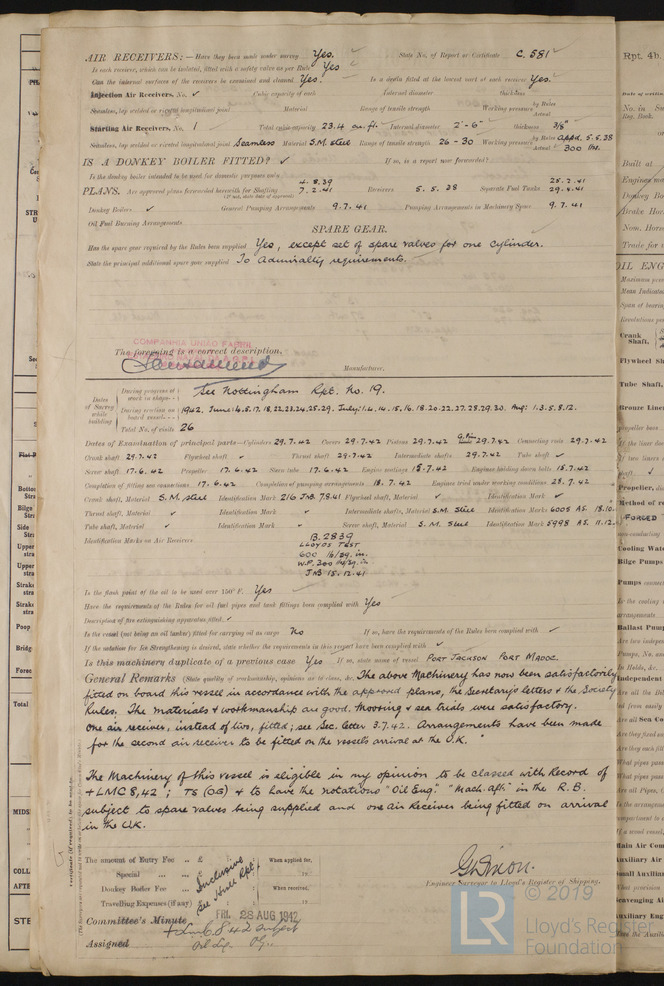 AIR RECEIVERS:—Have they been made under survey Yes. ✓ State No. of Report or Certificate C. 581 ✓
Is each receiver, which can be isolated, fitted with a safety valve as per Rule Yes ✓
Can the internal surfaces of the receivers be examined and cleaned Yes. ✓ Is a drain fitted at the lowest part of each receiver Yes. ✓
Injection Air Receivers, No. ✓ Cubic capacity of each Internal diameter thickness
Seamless, lap welded or riveted longitudinal joint Material Range of tensile strength Working pressure by Rules Actual
Starting Air Receivers, No. 1 Total cubic capacity 23.4 cu. ft. Internal diameter 2'-6" thickness 3/8"
Seamless, lap welded or riveted longitudinal joint Seamless Material S.M. steel Range of tensile strength 26-30 Working pressure by Rules appd. 5.5.38 Actual 300 lbs.
IS A DONKEY BOILER FITTED? ✓ If so, is a report now forwarded?
Is the donkey boiler intended to be used for domestic purposes only
PLANS. Are approved plans forwarded herewith for Shafting 4.8.39 7.2.41 Receivers 5.5.38 Separate Fuel Tanks 25.2.41 29.4.41
(If not, state date of approval)
Donkey Boilers ✓ General Pumping Arrangements 9.7.41 Pumping Arrangements in Machinery Space 9.7.41
Oil Fuel Burning Arrangements
SPARE GEAR.
Has the spare gear required by the Rules been supplied Yes, except set of spare valves for one cylinder.
State the principal additional spare gear supplied To Admiralty requirements.
COMPANHIA UNIAO FABRIL
The foregoing is a correct description,
Manufacturer.
Dates of Survey while building
During progress of work in shops-- See Nottingham Rpt. No. 19.
During erection on board vessel--- 1942, June: 4.5.17.18.22.23.24.25.29. July: 1.4.14.15.16.18.20.22.27.28.29.30. Aug: 1.3.5.8.12.
Total No. of visits 26
Dates of Examination of principal parts—Cylinders 29.7.42 Covers 29.7.42 Pistons 29.7.42 29.7.42 Connecting rods 29.7.42
Crank shaft 29.7.42 Flywheel shaft ✓ Thrust shaft 29.7.42 Intermediate shafts 29.7.42 Tube shaft ✓
Screw shaft 17.6.42 Propeller 17.6.42 Stern tube 17.6.42 Engine seatings 15.7.42 Engines holding down bolts 15.7.42
Completion of fitting sea connections 17.6.42 Completion of pumping arrangements 18.7.42 Engines tried under working conditions 28.7.42
Crank shaft, Material S.M. steel Identification Mark 216 JNB 7.8.41 Flywheel shaft, Material ✓ Identification Mark ✓
Thrust shaft, Material ✓ Identification Mark ✓ Intermediate shafts, Material S.M. Steel Identification Marks 6005 AS. 18.10.
Tube shaft, Material ✓ Identification Mark ✓ Screw shaft, Material S.M. Steel Identification Mark 5998 AS. 11.12.
Identification Marks on Air Receivers B.2839
LLOYDS TEST
600 lb/sq. in.
W.P. 300 lb/sq. in.
JNB 15.12.41
Is the flash point of the oil to be used over 150° F. Yes
Have the requirements of the Rules for oil fuel pipes and tank fittings been complied with Yes
Description of fire extinguishing apparatus fitted ✓
Is the vessel (not being an oil tanker) fitted for carrying oil as cargo No If so, have the requirements of the Rules been complied with ✓
If the notation for Ice Strengthening is desired, state whether the requirements in this respect have been complied with ✓
Is this machinery duplicate of a previous case Yes If so, state name of vessel PORT JACKSON PORT MADOC
General Remarks (State quality of workmanship, opinions as to class, &c. The above Machinery has now been satisfactorily
fitted on board this vessel in accordance with the approved plans, the Secretary's letters & the Society
Rules. The materials & workmanship are good. Mooring & sea trials were satisfactory.
One air receiver, instead of two, fitted; see Sec. letter 3.7.42. Arrangements have been made
for the second air receiver to be fitted on the vessels arrival at the U.K.
The Machinery of this vessel is eligible in my opinion to be classed with Record of
+LMC 8,42; TS (OG) & to have the notations "Oil Eng." "Mach. aft." in the R.B.
subject to spare valves being supplied and one Air Receiver being fitted on arrival
in the U.K.
The amount of Entry Fee .. £ When applied for,
Special .. .. £
Donkey Boiler Fee .. £ When received,
Travelling Expenses (if any) £
Inclusive
See Hull Rpt.
Engineer Surveyor to Lloyd's Register of Shipping.
Committee's Minute FRI. 28 AUG 1942
Assigned + LMC 8.42 subject
Oil Eng.
Certificate (if required) to be sent to
LR © 2019
Lloyd's Register
Foundation
Rpt. 4b.
Built at
OIL ENG
Crank Shaft,
Flywheel Sh
Tube Shaft,
Bronze Line
FORGED
Cooling Wate
Bilge Pumps
Ballast Pump